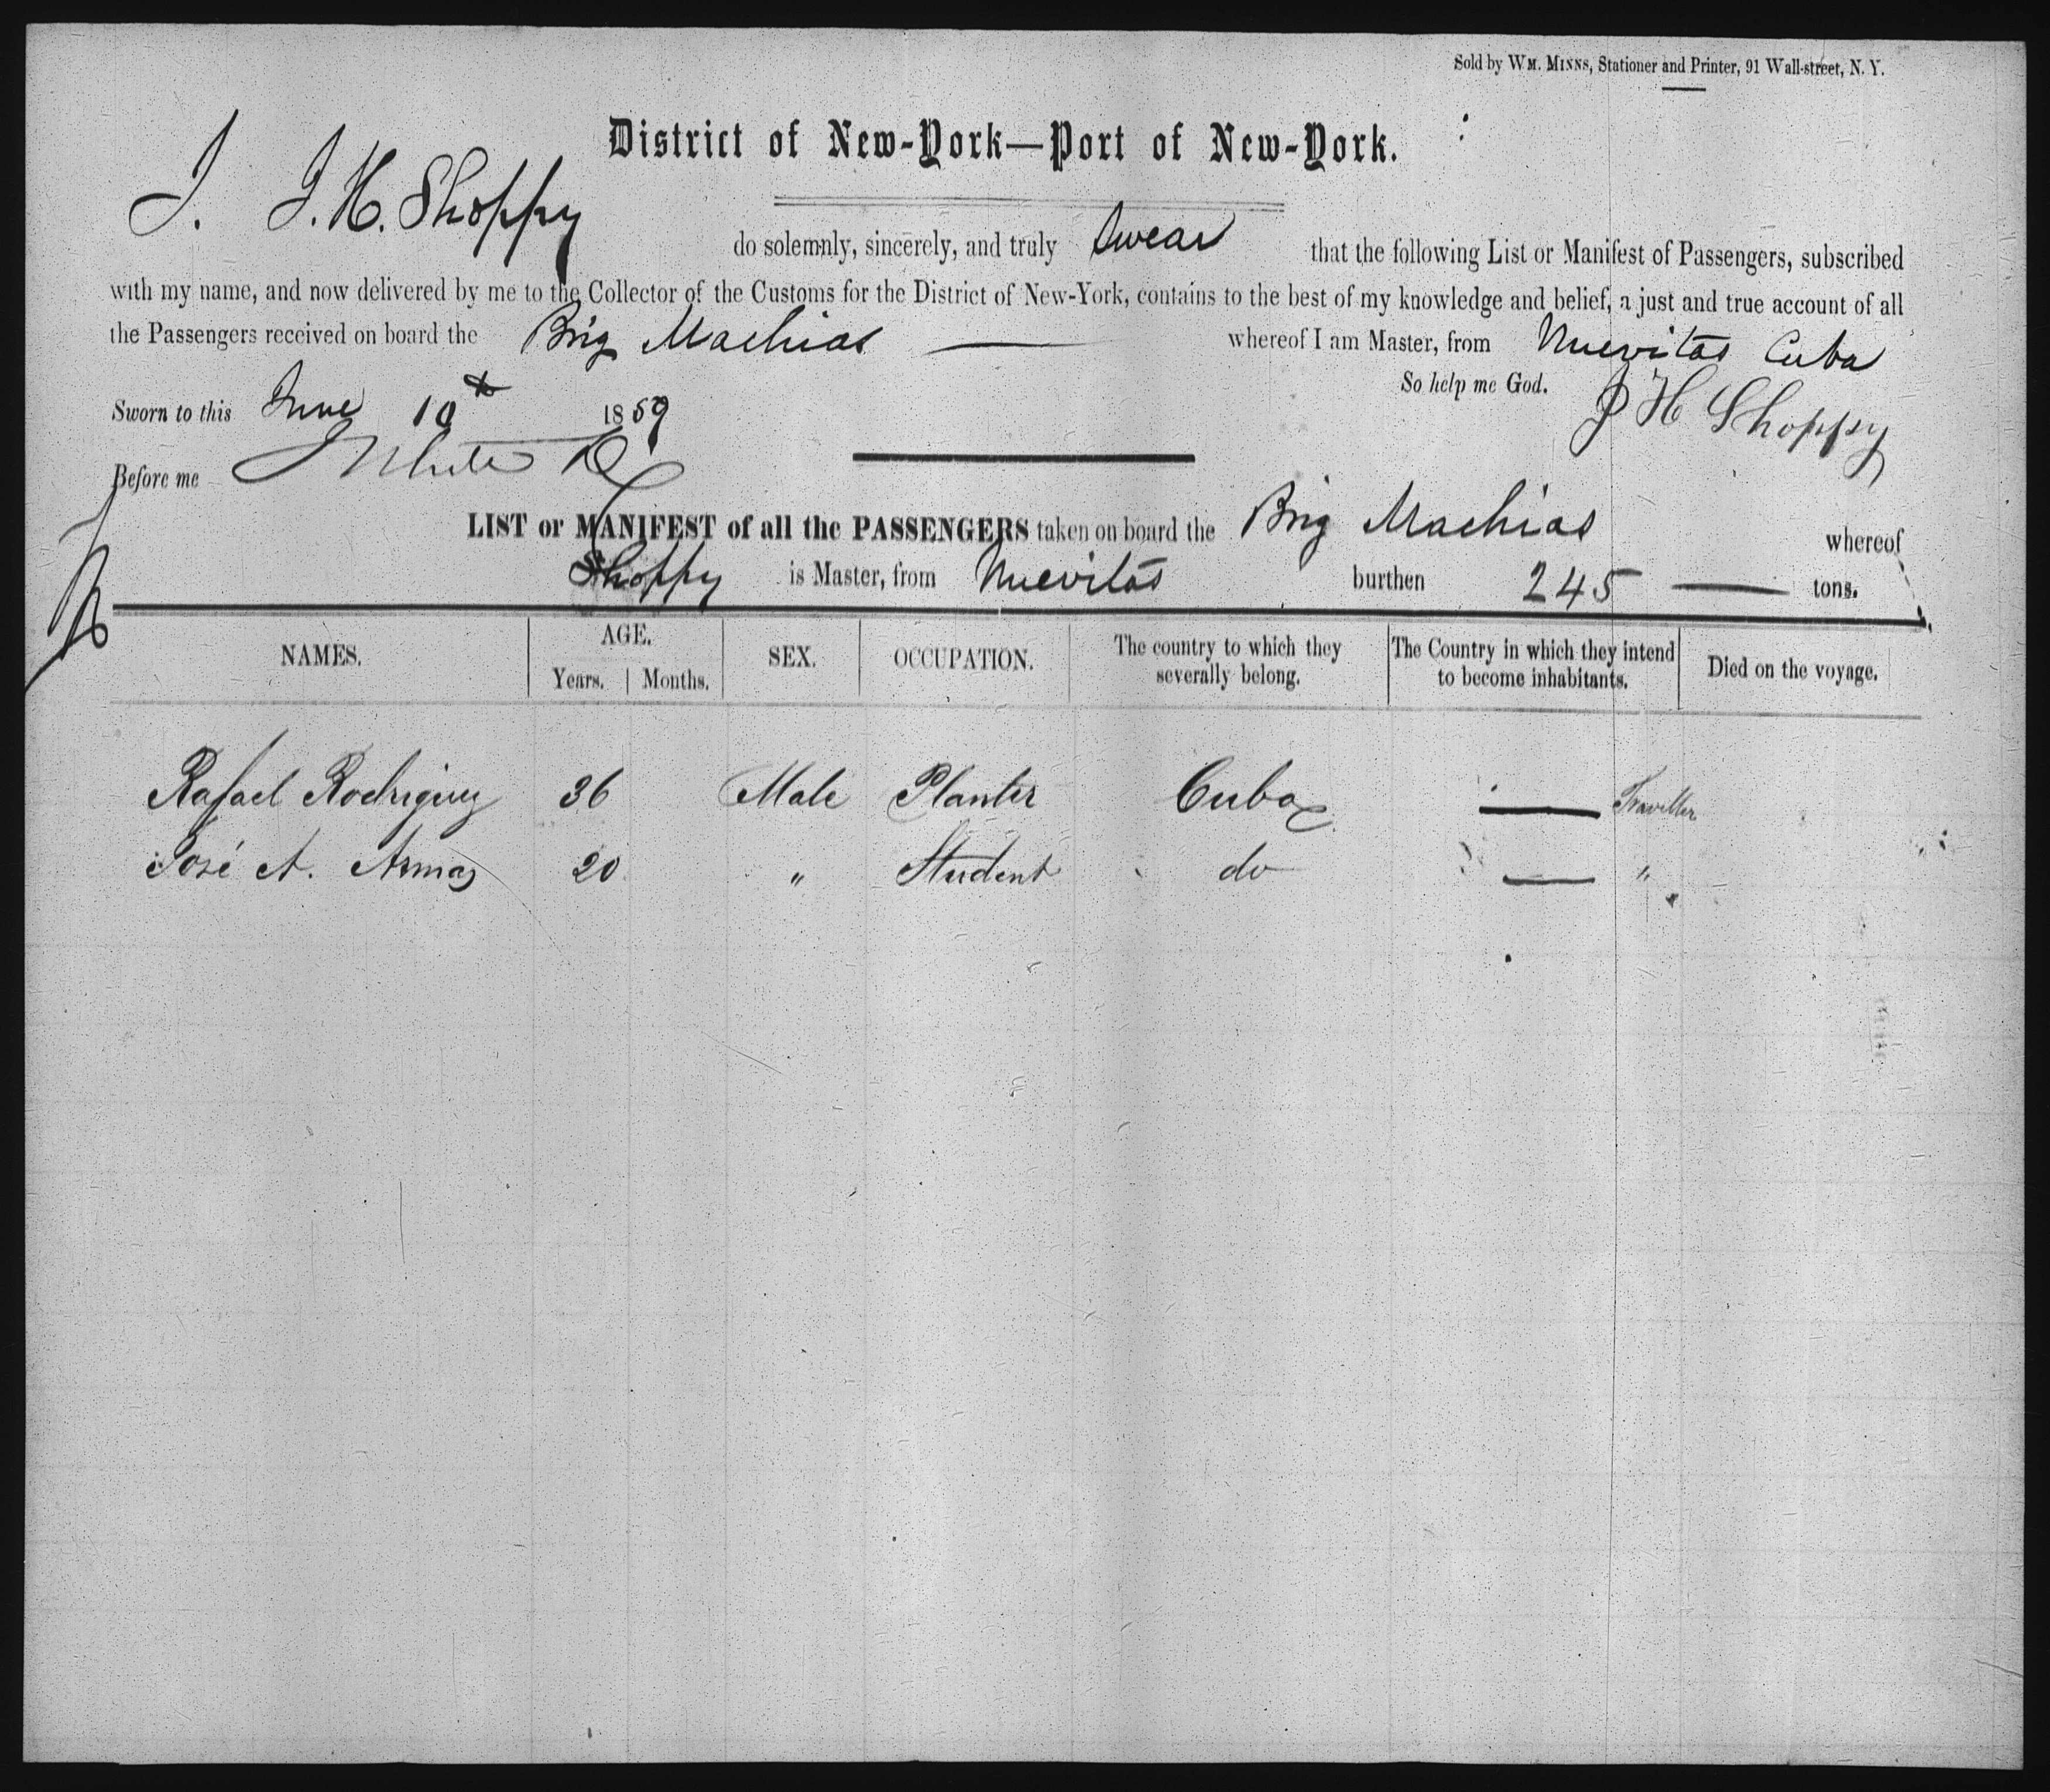 Sold by WM. MINNS, Stationer and Printer, 91 Wall-street, N. Y.
District of New-York—Port of New-York.
I. J. H. Shoppy do solemnly, sincerely, and truly Swear that the following List or Manifest of Passengers, subscribed
with my name, and now delivered by me to the Collector of the Customs for the District of New-York, contains to the best of my knowledge and belief, a just and true account of all
the Passengers received on board the Brig Machias — whereof I am Master, from Nuevitas Cuba
So help me God.
Sworn to this June 10th 1859 J H Shoppy
Before me White
LIST or MANIFEST of all the PASSENGERS taken on board the Brig Machias whereof
Shoppy is Master, from Nuevitas burthen 245 — tons.
NAMES. AGE. Years. Months. SEX. OCCUPATION. The country to which they severally belong. The Country in which they intend to become inhabitants. Died on the voyage.
Rafael Rodriguez 36 Male Planter Cuba — Traveller
José A. Armas 20 " Student do — "